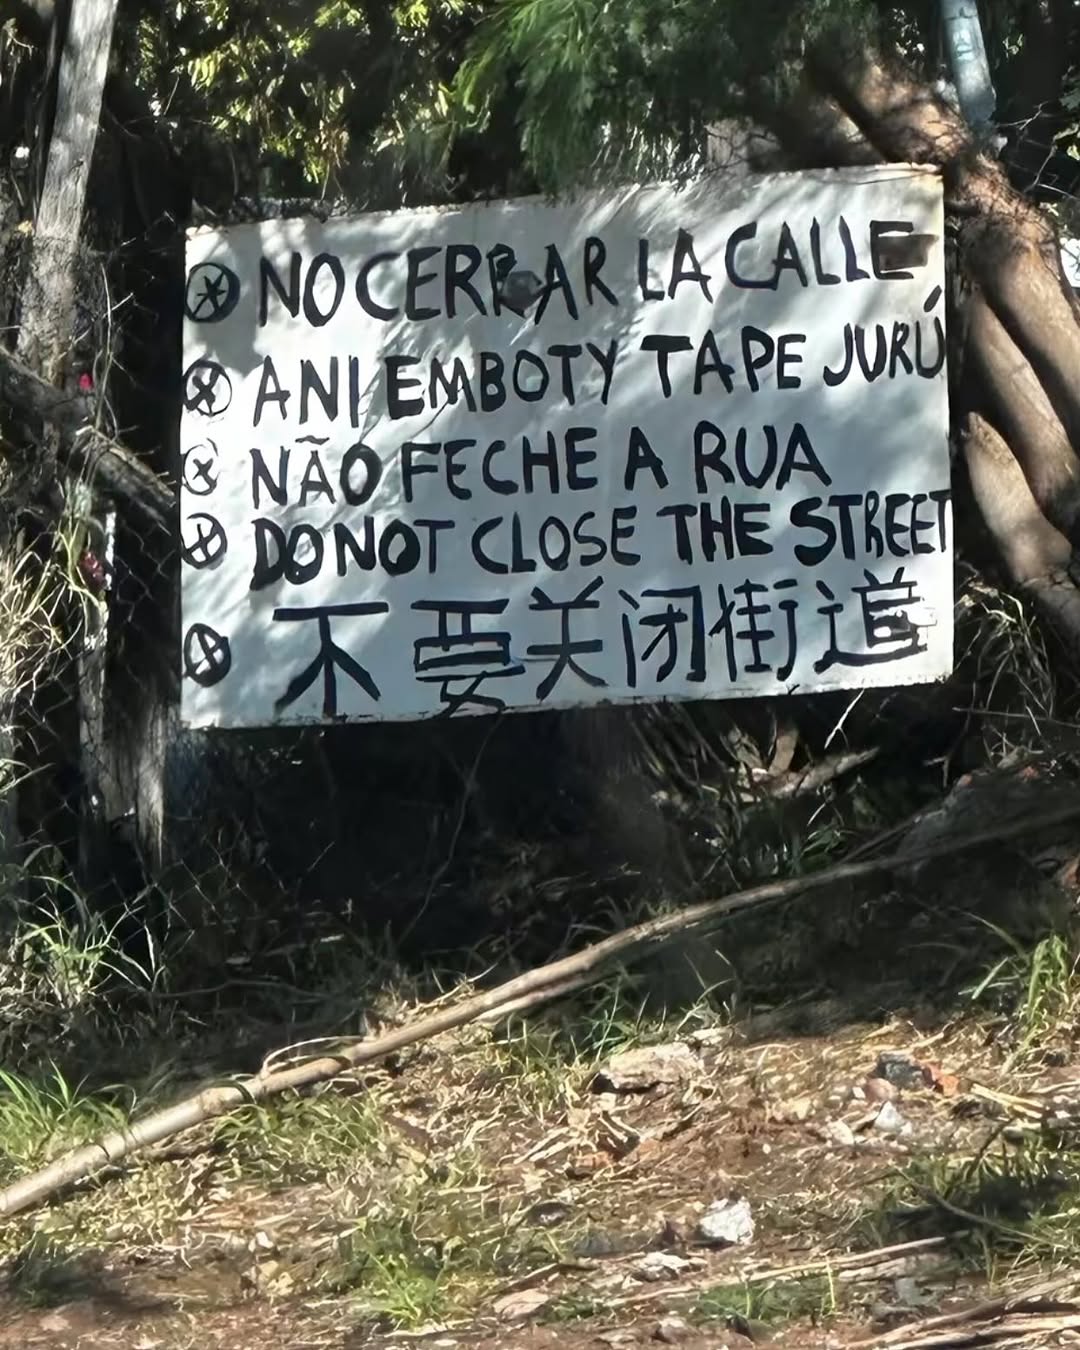 NO CERRAR LA CALLE
ANI EMBOTY TAPE JURÚ
NÃO FECHE A RUA
DO NOT CLOSE THE STREET
不要关闭街道